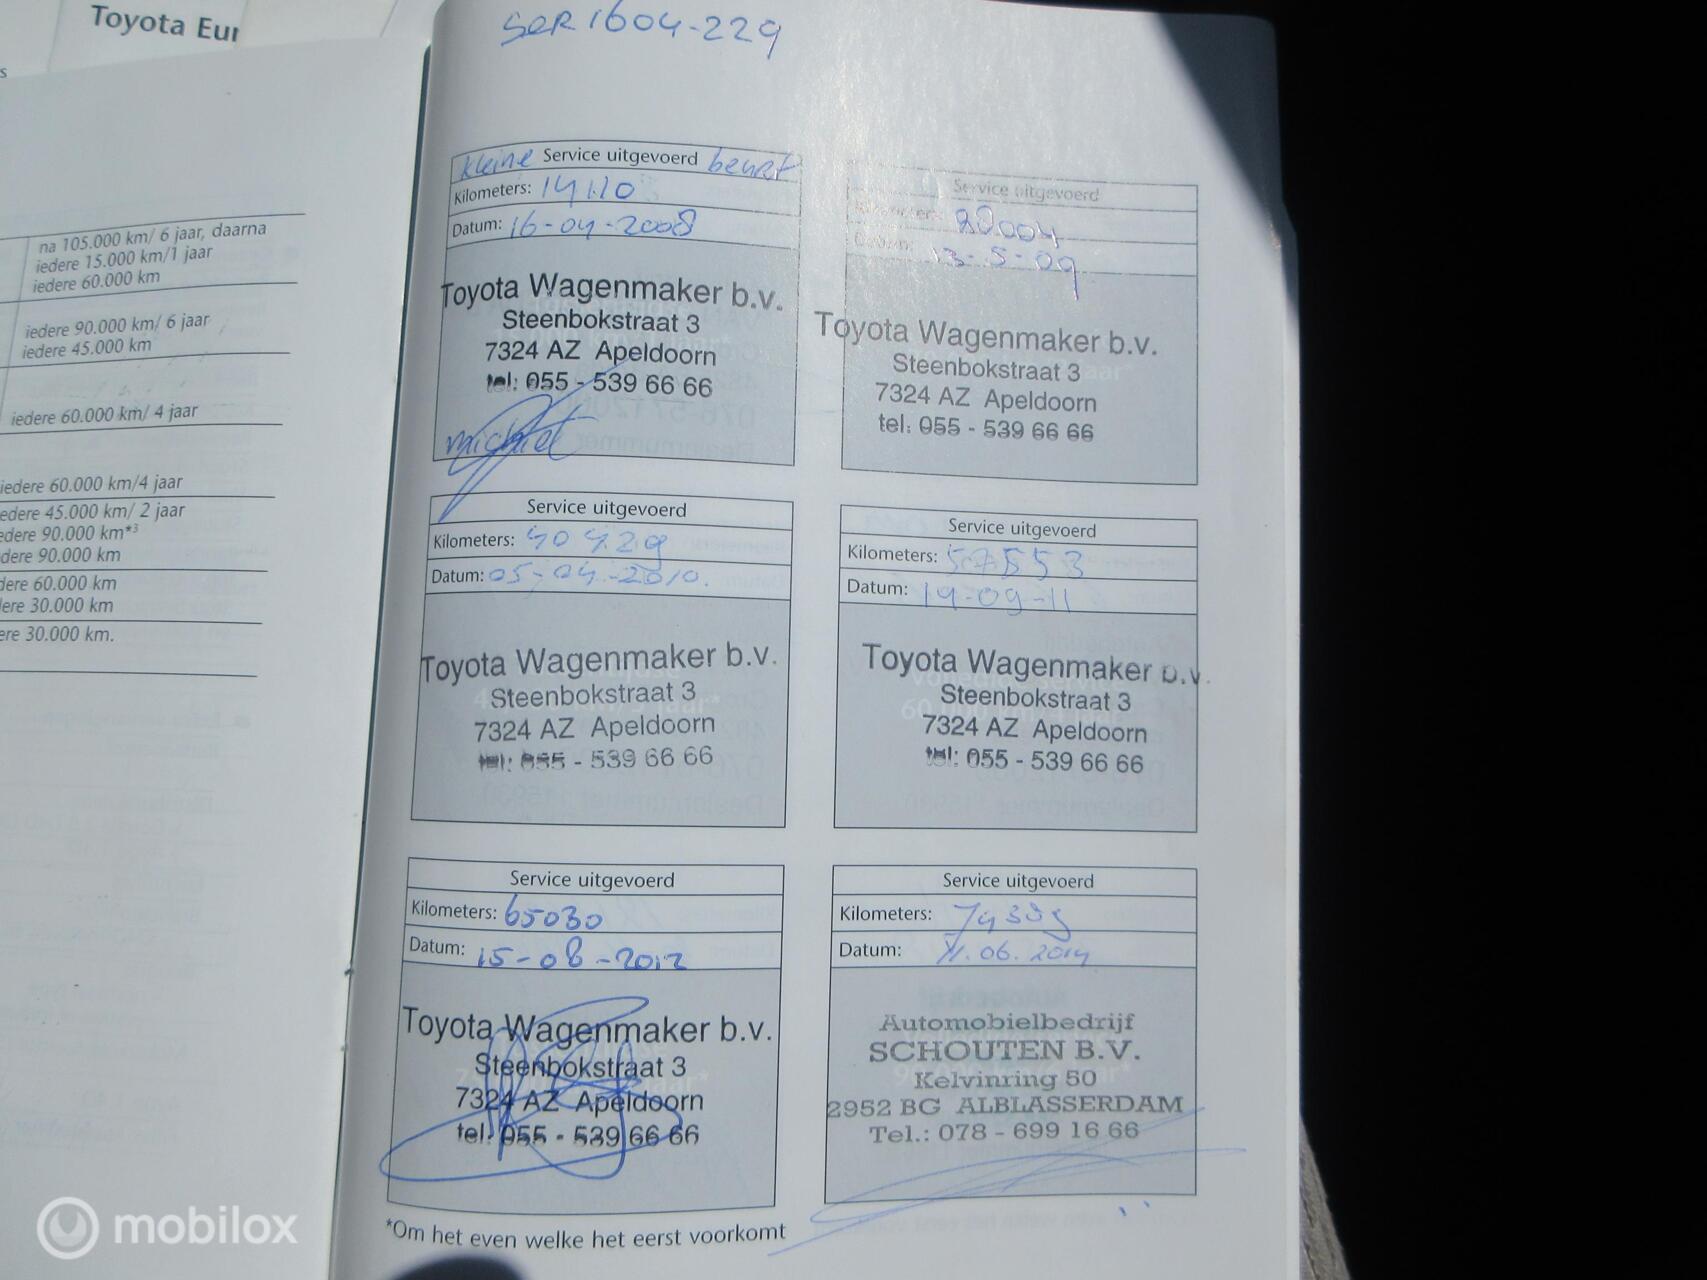 Toyota Eur
s
na 105.000 km/ 6 jaar, daarna
iedere 15.000 km/1 jaar
iedere 60.000 km
iedere 90.000 km/ 6 jaar
iedere 45.000 km
iedere 60.000 km/ 4 jaar
iedere 60.000 km/4 jaar
edere 45.000 km/ 2 jaar
edere 90.000 km*3
dere 90.000 km
dere 60.000 km
dere 30.000 km
ere 30.000 km.
SER 1604-229
kleine Service uitgevoerd beurt
Kilometers: 14110
Datum: 16-04-2008
Toyota Wagenmaker b.v.
Steenbokstraat 3
7324 AZ Apeldoorn
tel: 055 - 539 66 66
Michiel
Service uitgevoerd
Kilometers: 28004
Datum: 13-5-09
Toyota Wagenmaker b.v.
Steenbokstraat 3
7324 AZ Apeldoorn
tel: 055 - 539 66 66
Service uitgevoerd
Kilometers: 40429
Datum: 05-04-2010.
Toyota Wagenmaker b.v.
Steenbokstraat 3
7324 AZ Apeldoorn
tel: 055 - 539 66 66
Service uitgevoerd
Kilometers: 57553
Datum: 19-09-11
Toyota Wagenmaker b.v.
Steenbokstraat 3
7324 AZ Apeldoorn
tel: 055 - 539 66 66
Service uitgevoerd
Kilometers: 65030
Datum: 15-08-2012
Toyota Wagenmaker b.v.
Steenbokstraat 3
7324 AZ Apeldoorn
tel: 055 - 539 66 66
Service uitgevoerd
Kilometers:
Datum: 11.06.2014
Automobielbedrijf
SCHOUTEN B.V.
Kelvinring 50
2952 BG ALBLASSERDAM
Tel.: 078 - 699 16 66
*Om het even welke het eerst voorkomt
mobilox